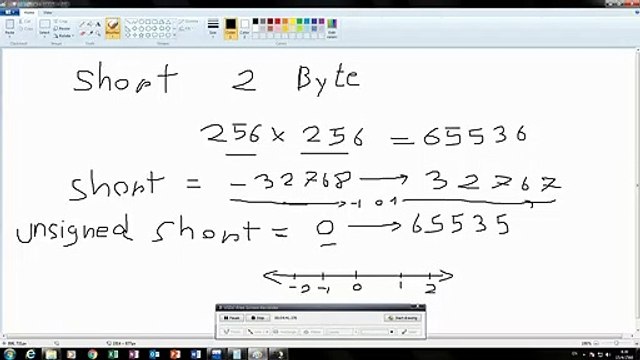 short 2 Byte
256 × 256 = 65536
short = -32768 → 32767
-1 0 1
unsigned short = 0 → 65535
-2 -1 0 1 2